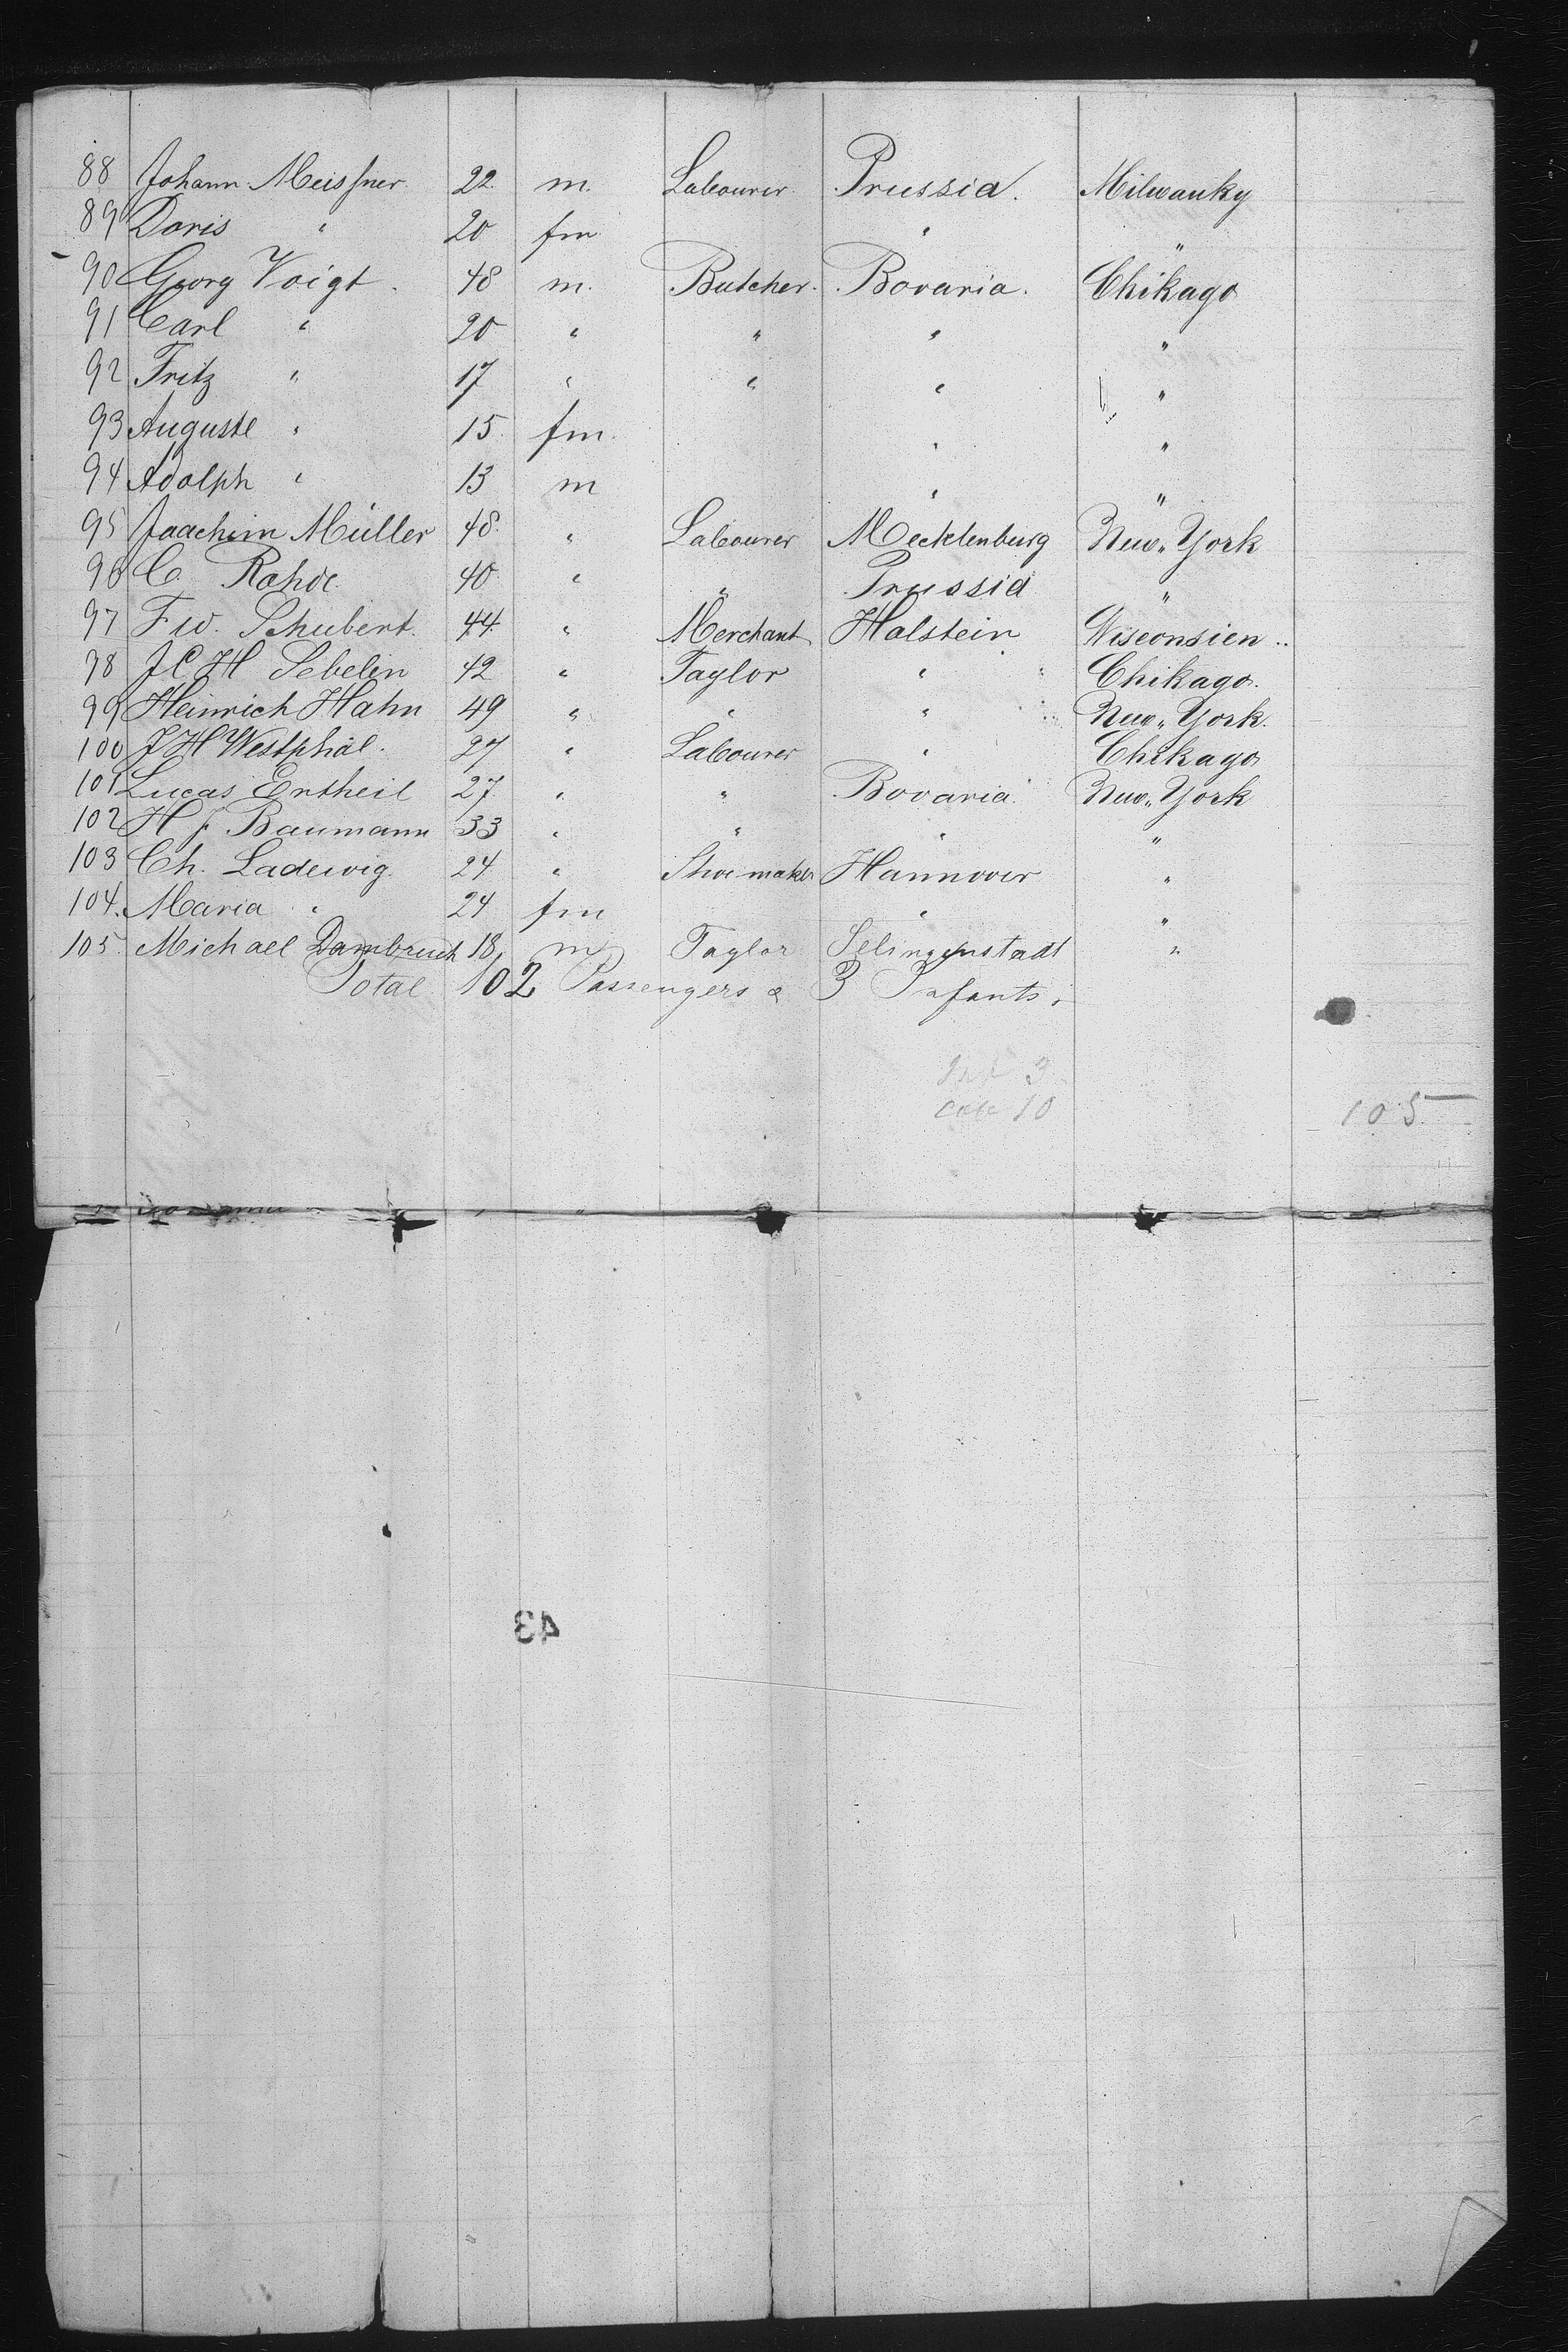 88 Johann Meissner 22 m. Labourer Prussia. Milwauky
89 Doris " 20 fm " "
90 Georg Voigt. 48 m. Butcher. Bovaria. Chikago
91 Carl " 20 " " " "
92 Fritz " 17 " " " "
93 Auguste " 15 fm. " "
94 Adolph " 13 m " "
95 Joachim Müller 48 " Labourer Mecklenburg New-York
96 C. Rohde 40 " " Prussia "
97 Fw. Schubert. 44 " Merchant Holstein Wisconsien
98 J C H Sebelin 42 " Taylor " Chikago.
99 Heinrich Hahn 49 " " " New-York.
100 J H Westphal. 27 " Labourer " Chikago
101 Lucas Ertheil 27 " " Bovaria. New-York
102 H J. Baumann 33 " " " "
103 Ch. Ladewig. 24 " Shoemaker Hannover "
104. Maria " 24 fm " "
105. Michael Dambruch 18 m Taylor Selingenstadt "
Total 102 Passengers & 3 Infants.
Inf 3
10 105
43